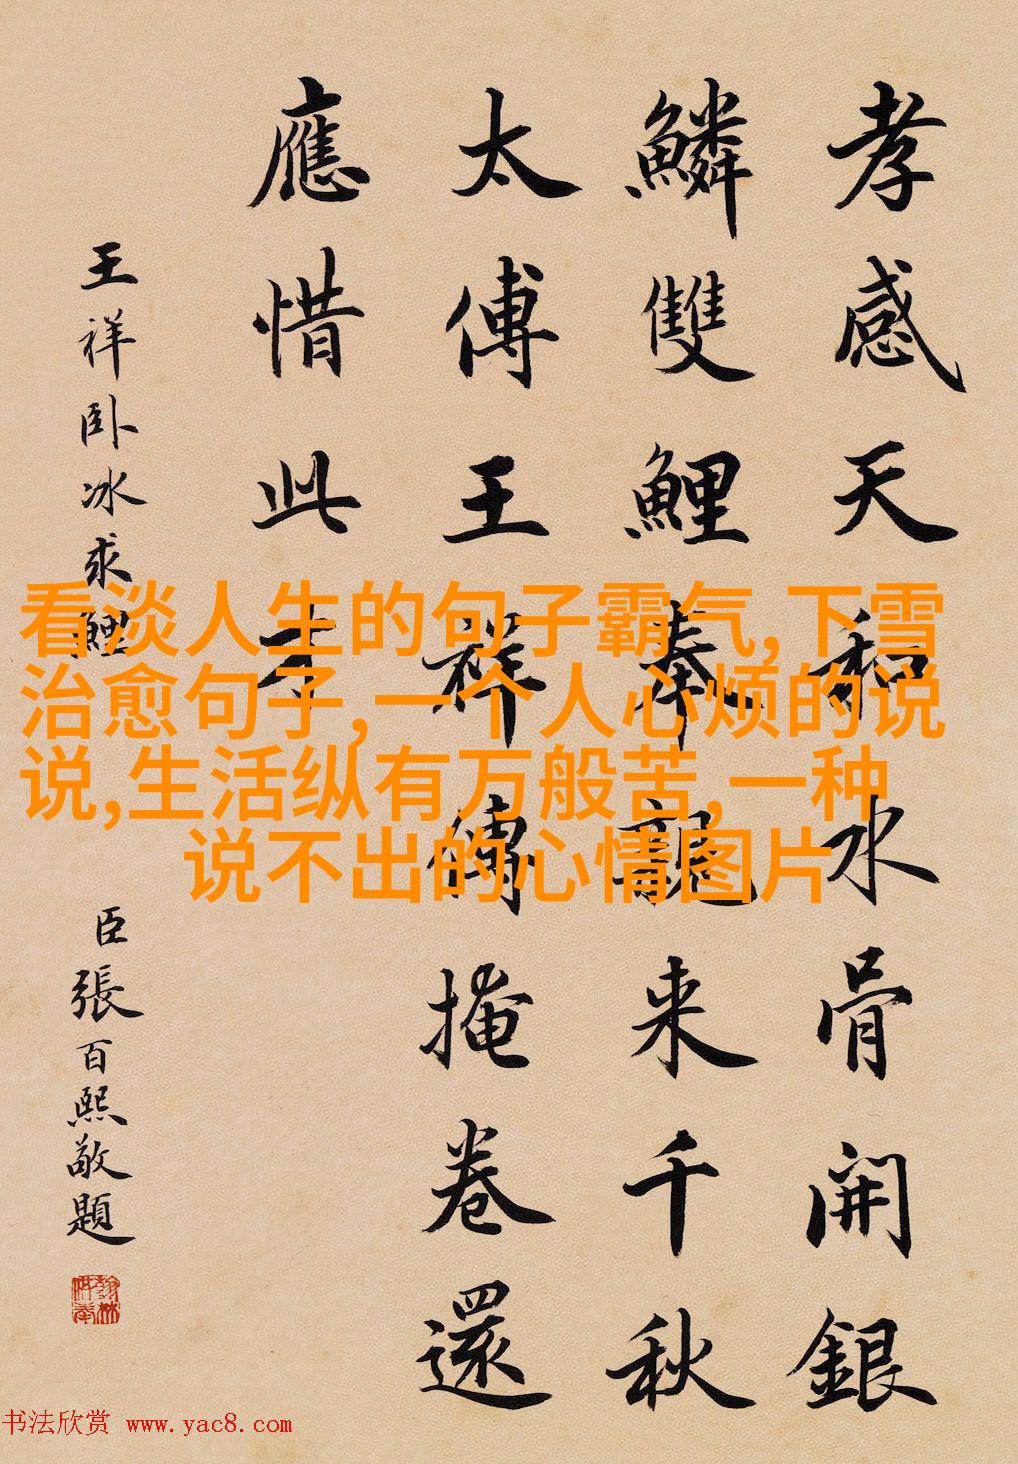 孝感天和水骨開銀
鱗雙鯉奉親来千秋
太傅王祥傳掩卷還
應惜此才
王祥卧冰求鯉
臣張百熙敬題
看淡人生的句子霸气,下雪
治愈句子,一个人心烦的说
说,生活纵有万般苦,一种
说不出的心情图片
书法欣赏 www.yac8.com